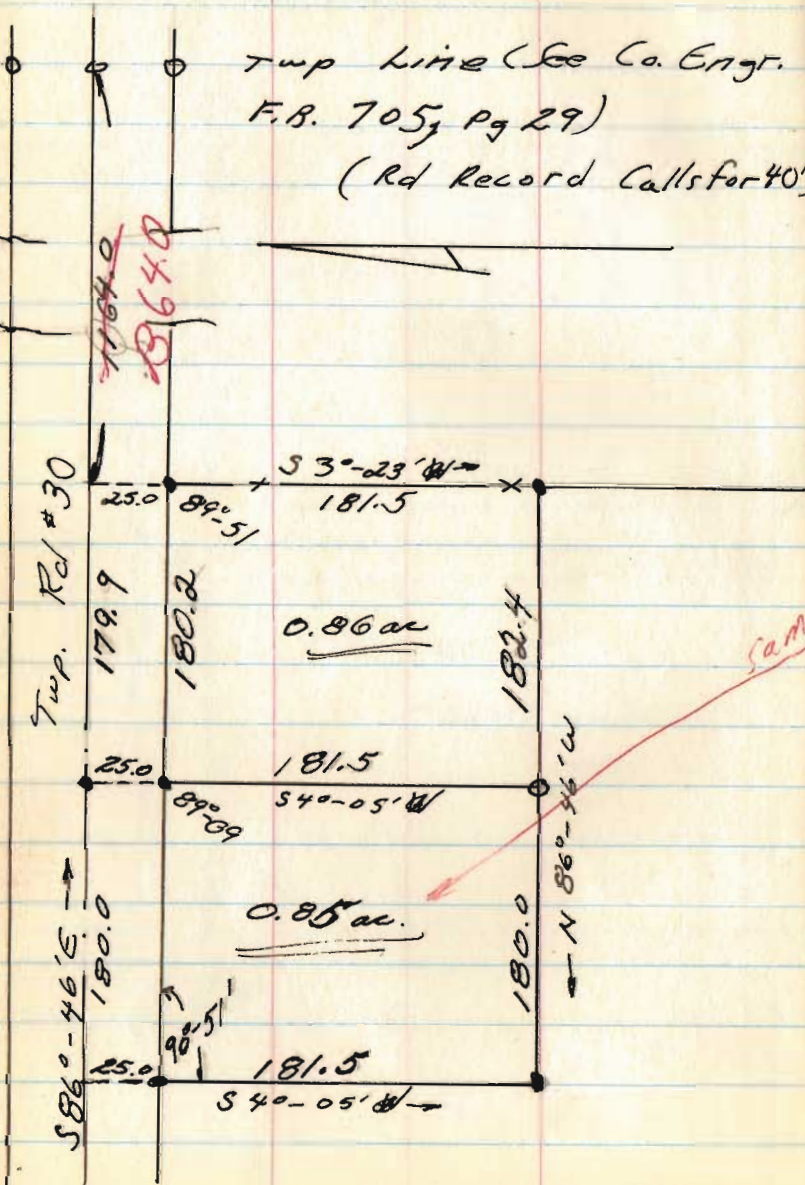 Twp Line (See Co. Engr.
F.B. 705, Pg 29)
(Rd Record Calls for 40')
1164.0
1364.0
Twp. Rd #30
S 3°-23' W
25.0
89°-51
181.5
179.9
180.2
0.86 ac
182.4
Sam
25.0
181.5
89°-09
S 4°-05' W
N 86°-46' W
S 86°-46' E
180.0
0.85 ac.
180.0
90°-51'
25.0
181.5
S 4°-05' W